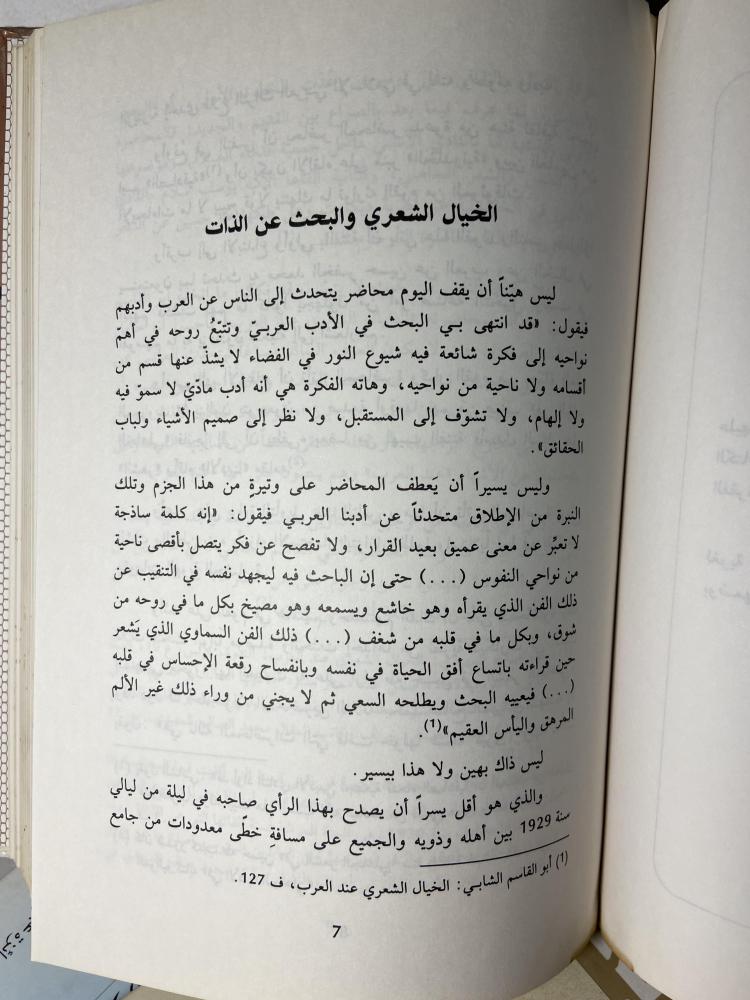 الخيال الشعري والبحث عن الذات
ليس هيّناً أن يقف اليوم محاضر يتحدث إلى الناس عن العرب وأدبهم
فيقول: «قد انتهى بي البحث في الأدب العربيّ وتتبّعُ روحه في أهمّ
نواحيه إلى فكرة شائعة فيه شيوع النور في الفضاء لا يشذّ عنها قسم من
أقسامه ولا ناحية من نواحيه، وهاته الفكرة هي أنه أدب مادّيّ لا سموّ فيه
ولا إلهام، ولا تشوّف إلى المستقبل، ولا نظر إلى صميم الأشياء ولباب
الحقائق».
وليس يسيراً أن يَعطف المحاضر على وتيرةٍ من هذا الجزم وتلك
النبرة من الإطلاق متحدثاً عن أدبنا العربي فيقول: «إنه كلمة ساذجة
لا تعبِّر عن معنى عميق بعيد القرار، ولا تفصح عن فكر يتصل بأقصى ناحية
من نواحي النفوس (...) حتى إن الباحث فيه ليجهد نفسه في التنقيب عن
ذلك الفن الذي يقرأه وهو خاشع ويسمعه وهو مصيخ بكل ما في روحه من
شوق، وبكل ما في قلبه من شغف (...) ذلك الفن السماوي الذي يَشعر
حين قراءته باتساع أفق الحياة في نفسه وبانفساح رقعة الإحساس في قلبه
(...) فيعييه البحث ويطلحه السعي ثم لا يجني من وراء ذلك غير الألم
المرهق واليأس العقيم»(1).
ليس ذاك بهين ولا هذا بيسير.
والذي هو أقل يسراً أن يصدح بهذا الرأي صاحبه في ليلة من ليالي
سنة 1929 بين أهله وذويه والجميع على مسافةِ خطًى معدودات من جامع
(1) أبو القاسم الشابي: الخيال الشعري عند العرب، ف 127.
7